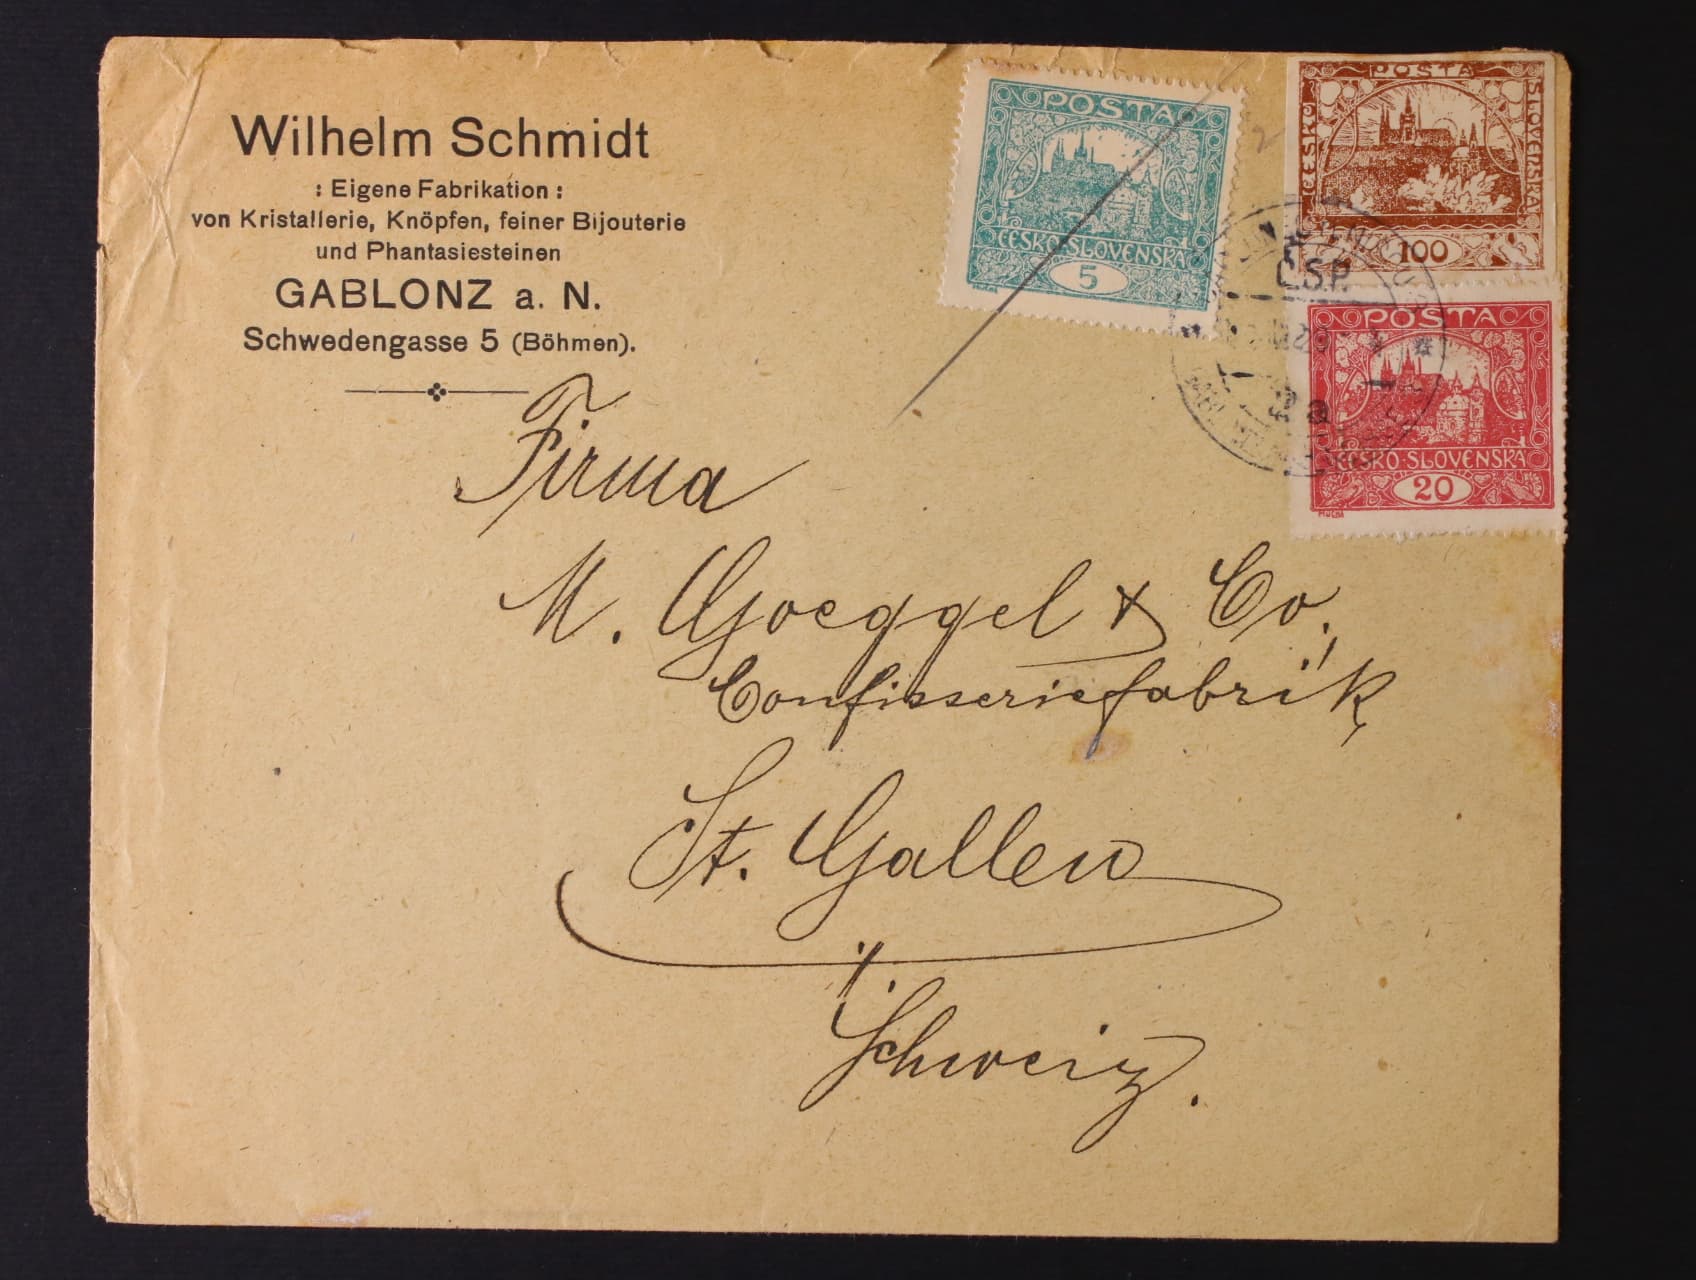 Wilhelm Schmidt
: Eigene Fabrikation :
von Kristallerie, Knöpfen, feiner Bijouterie
und Phantasiesteinen
GABLONZ a. N.
Schwedengasse 5 (Böhmen).
POSTA
ČESKO·SLOVENSKÁ
5
POSTA
ČESKO
SLOVENSKÁ
100
Č.S.P.
POSTA
ČESKO·SLOVENSKÁ
20
MUCHA
Firma
M. Goeggel & Co.
Confisseriefabrik,
St. Gallen
Schweiz.